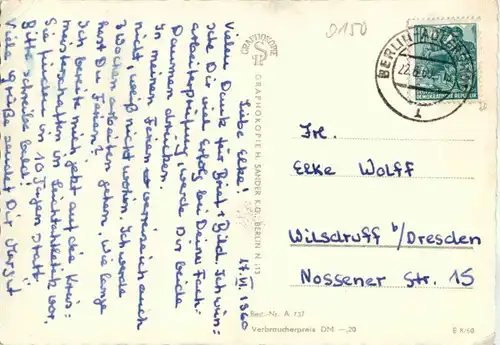 17. VI. 1960
Liebe Elke!
Vielen Dank für Brief + Bild. Ich wün-
sche Dir viel Erfolg bei Deine Fach-
arbeitsprüfung, werde Dir beide
Daumen drücken.
In meinen Ferien verreise ich auch
nicht, weiß nicht wohin. Ich werde
3 Wochen arbeiten gehen. Wie lange
hast Du Ferien?
Ich bereite mich jetzt auf die Kreis-
meisterschaften in Leichtathletik vor.
Sie finden in 10 Tagen statt.
Bitte schreibe bald!
Viele Grüße sendet Dir Margit
GRAPHOKOPIE
GRAPHOKOPIE H. SANDER K.G., BERLIN N 113
0150
BERLIN-ADLERSHOF
1
DEUTSCHE
DEMOKRATISCHE REPUBLIK
Frl.
Elke Wolff
Wilsdruff b/Dresden
Nossener Str. 15
Best.-Nr. A 737
Verbraucherpreis DM —,20
B 8/60